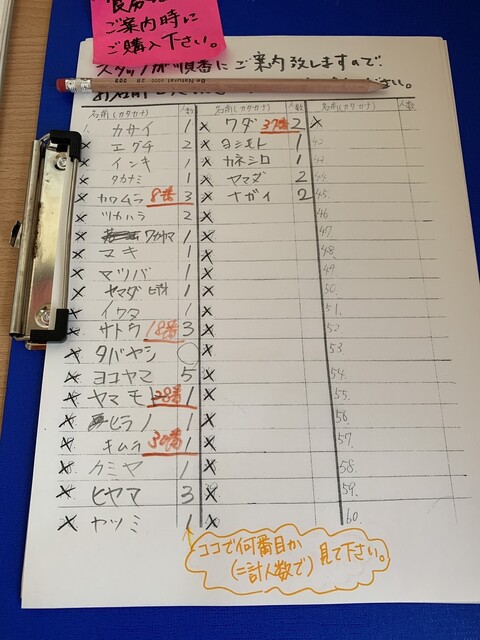 ご案内時に
ご購入下さい。
スタッフが順番にご案内致しますので
名前(カタカナ) 人数 名前(カタカナ) 人数 名前(カタカナ) 人数
カサイ 1 ワダ 37番 2
エグチ 2 ヨシモト 1
インキ 1 カネシロ 1
タカナミ 1 ヤマダ 2
カワムラ 8番 3 ナガイ 2 45.
ツカハラ 2 46
ワカヤマ 1 47.
マキ 1 48.
マツバ 1 49.
ヤマダ 1 50.
イワタ 1 51.
サトウ 18番 3 52
タバヤシ 53
ヨコヤマ 5 54.
ヤマモト 28番 1 55.
ヒラノ 1 56.
キムラ 30番 1 57.
クミヤ 1 58.
ヒヤマ 3 59.
ヤツミ 1 60.
ココで何番目か
(=計人数で)見て下さい。